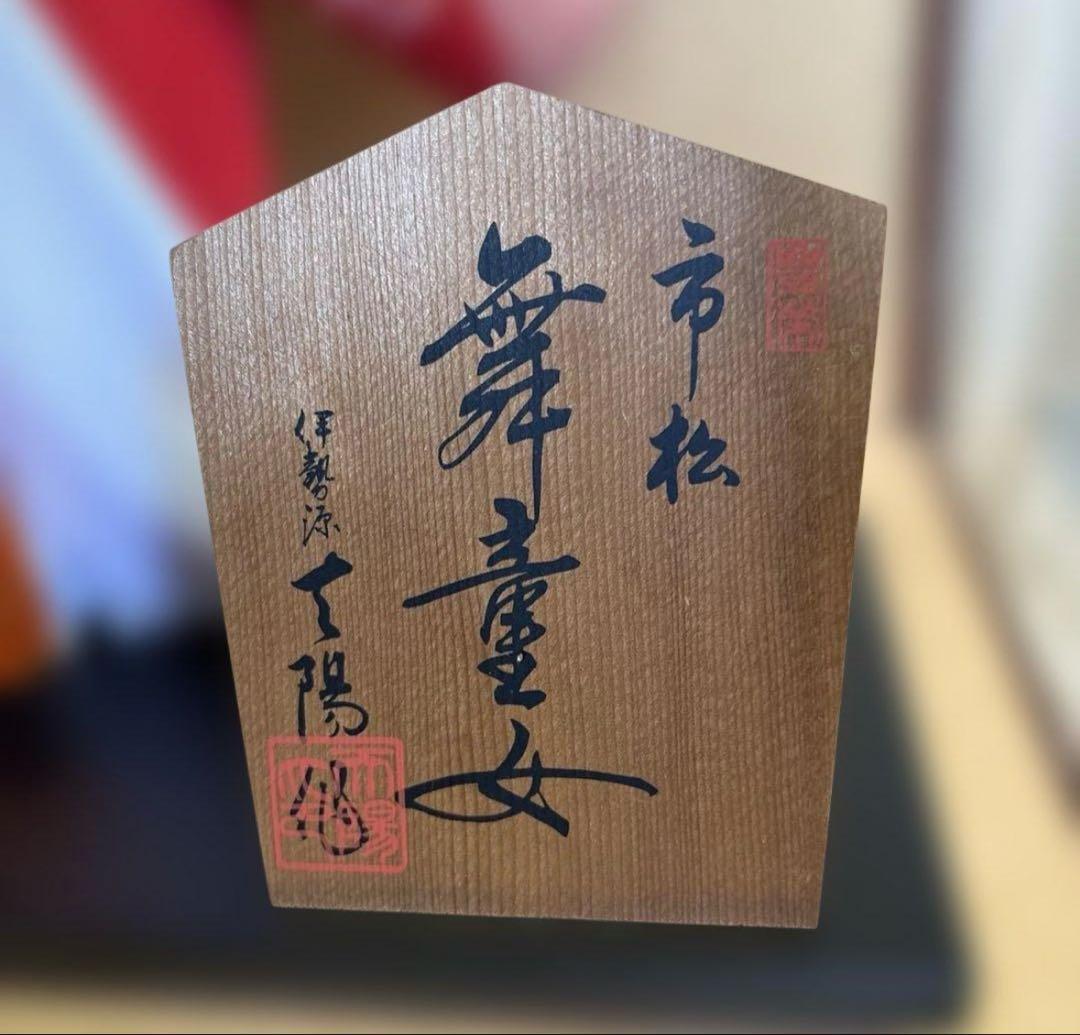 市松
舞童女
伊勢源 陽